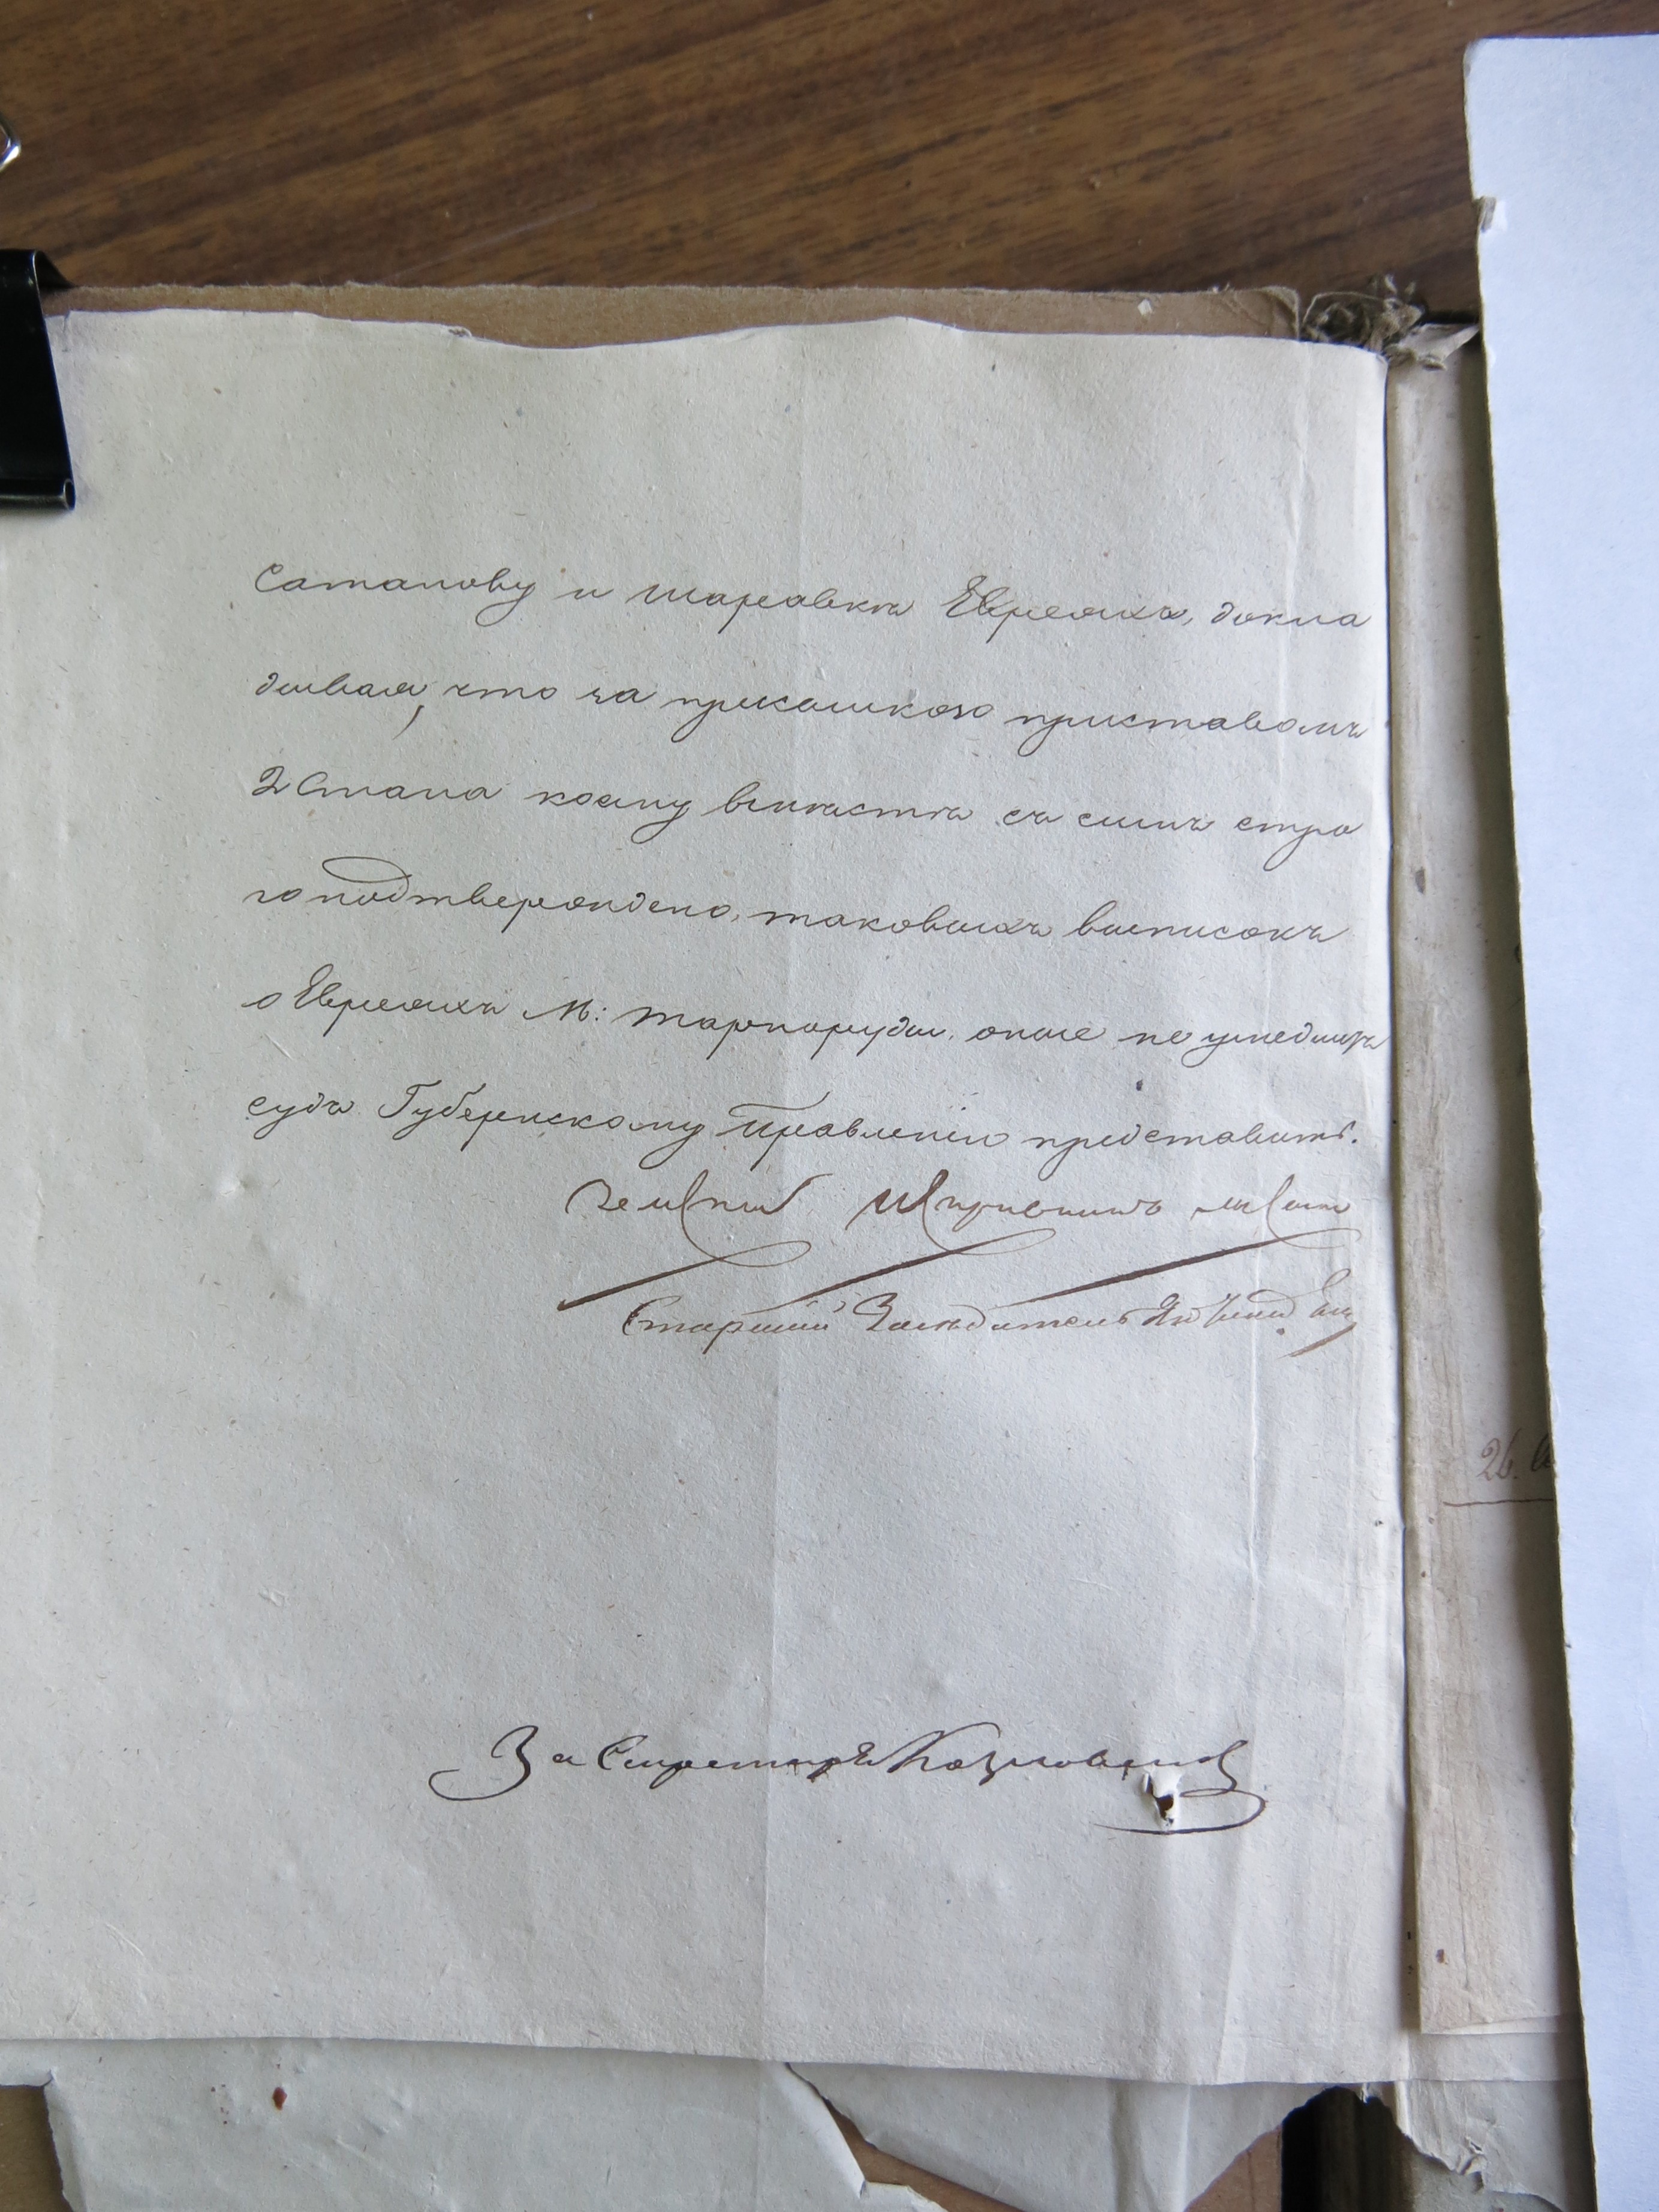 Сатанову и шаравки Евреяхъ, докла
дывая, что за присылкого приставомъ
2 Стана коему вмѣстѣ съ симъ стро
го подтверждено, таковыхъ выписокъ
о Евреяхъ М: Тарноруды, оные не умедлитъ
судъ Губернскому Правленiю представить.
Земскiй Исправникъ
Старшiй Засѣдатель
За Секретаря Козловскiй
26.